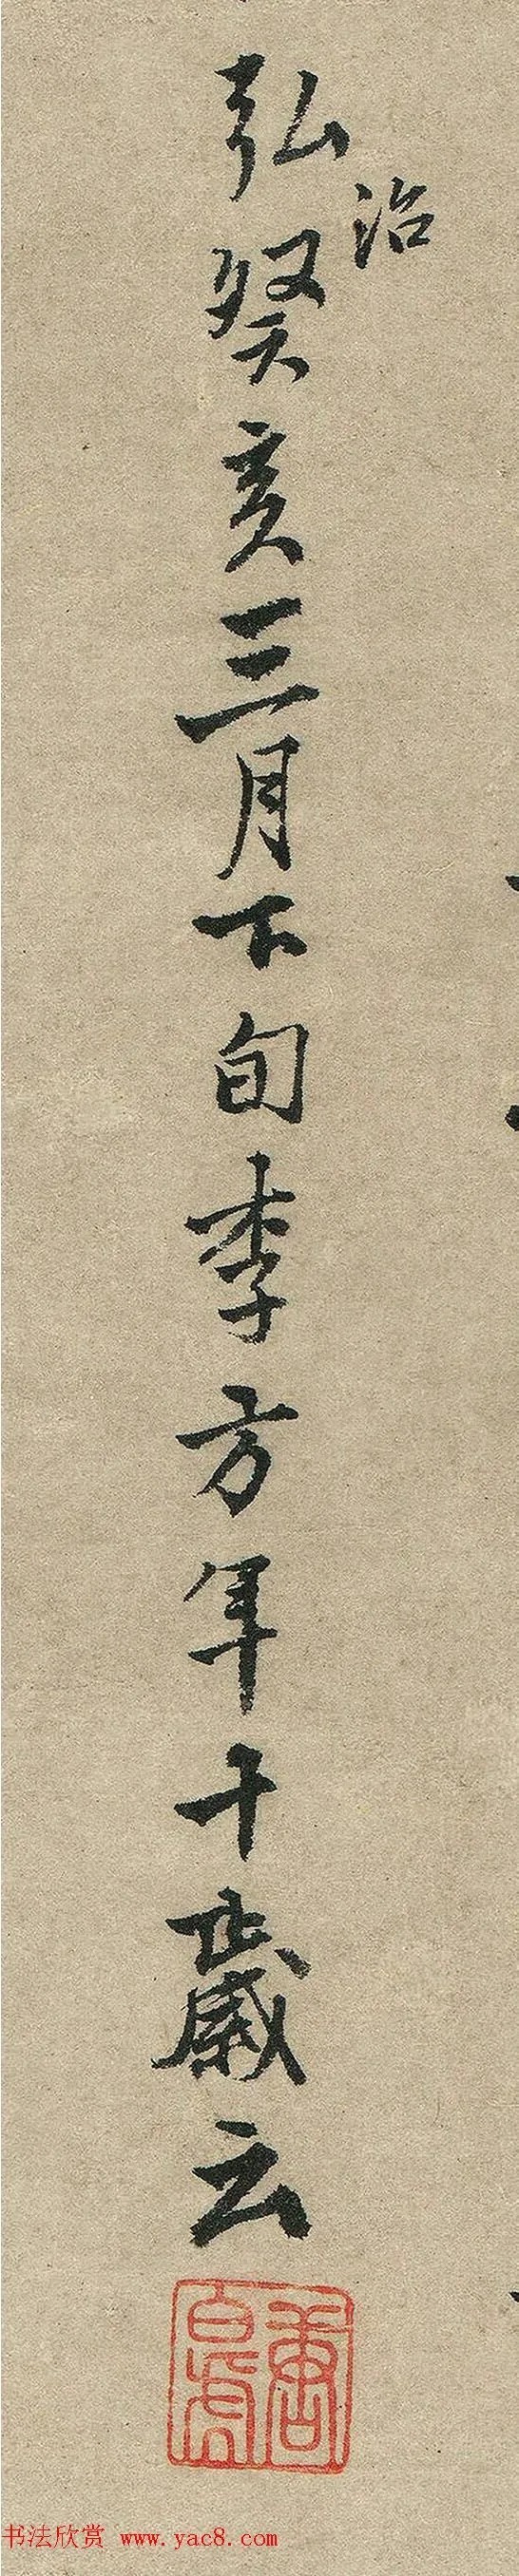 弘治癸亥三月下旬李方年十歲云
唐白虎
书法欣赏 www.yac8.com